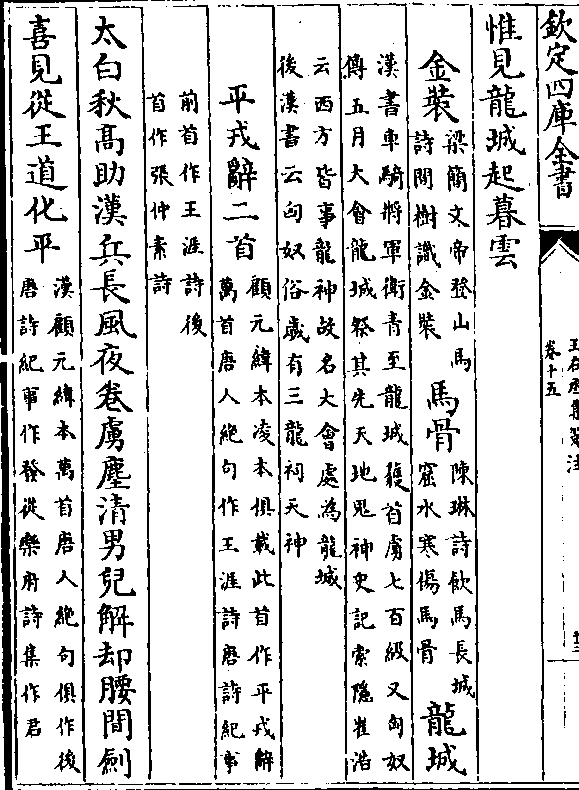 欽定四庫全書
王右丞集箋注
卷十五
惟見龍城起暮雲
金裝 梁簡文帝登山馬詩間樹識金裝 馬骨 陳琳詩飲馬長城窟水寒傷馬骨 龍城
漢書車騎將軍衛青至龍城獲首虜七百級又匈奴傳五月大會龍城祭其先天地鬼神史記索隱崔浩
云西方皆事龍神故名大會處為龍城後漢書云匈奴俗歲有三龍祠天神
平戎辭二首 顧元緯本凌本俱載此首作平戎辭萬首唐人絶句作王涯詩唐詩紀事
前首作王涯詩後首作張仲素詩
太白秋髙助漢兵長風夜卷虜塵清男兒解却腰間劍
喜見從王道化平 漢顧元緯本萬首唐人絶句俱作後唐詩紀事作發從樂府詩集作君